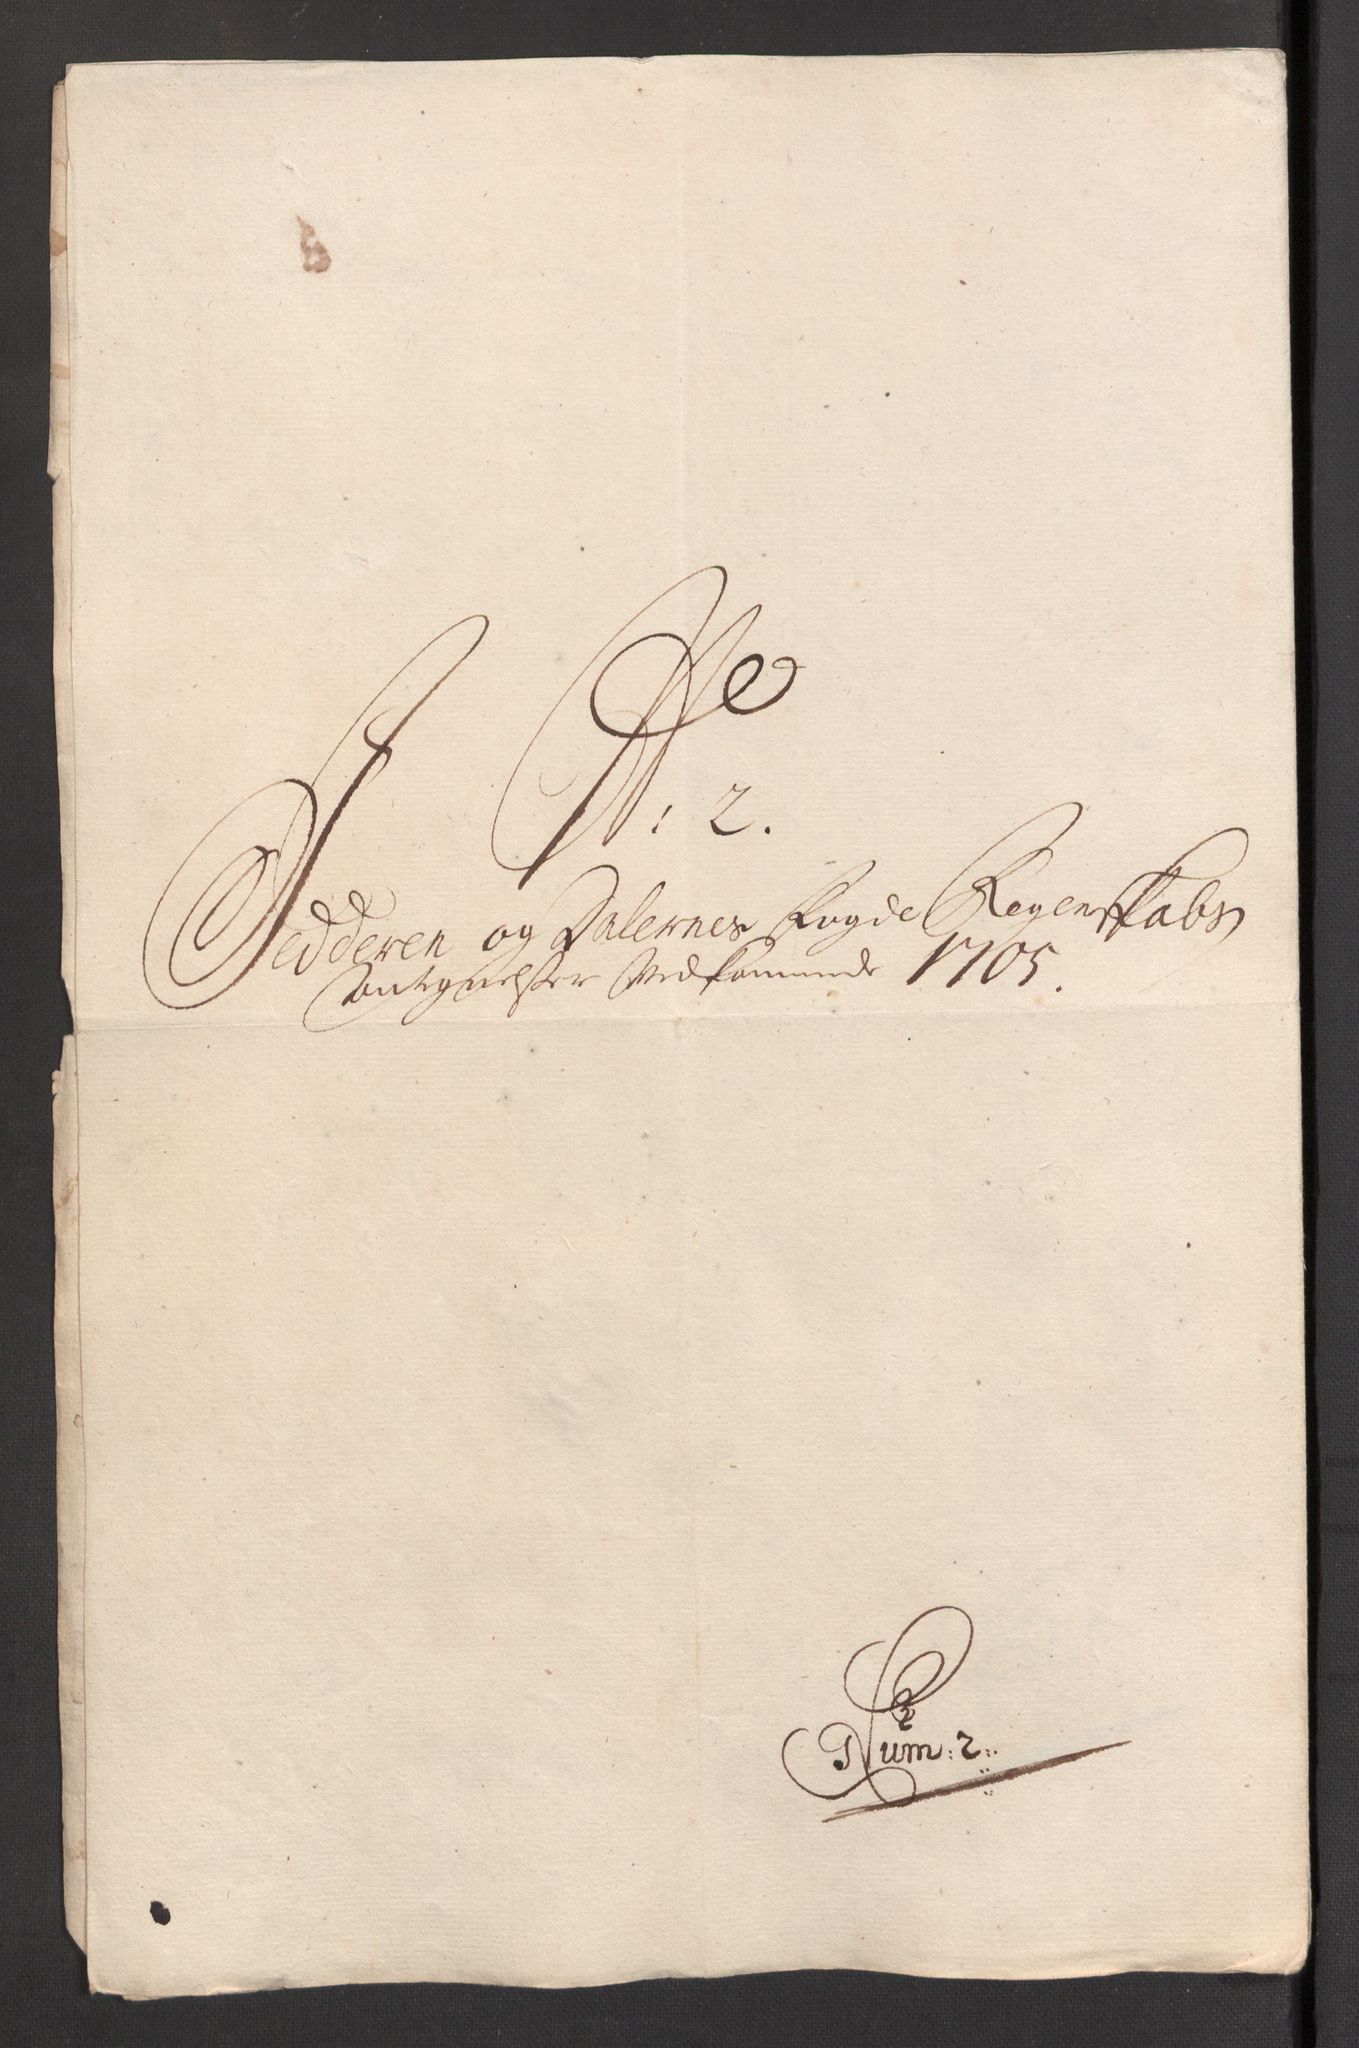 No
: 2.
Jedderen og Dalernes Fogde Regenskabs
antegnelser Vedkommende 1705.
Num: 2.